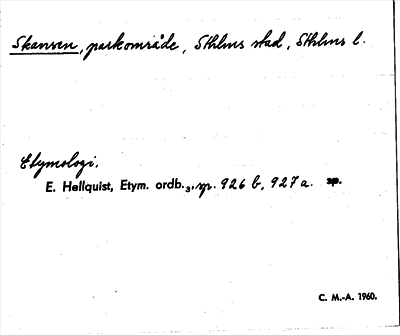 Skansen, parkområde, Sthlms stad, Sthlms l.
Etymologi.
E. Hellquist, Etym. ordb.3, sp. 926 b, 927 a. sp.
C. M.-A. 1960.